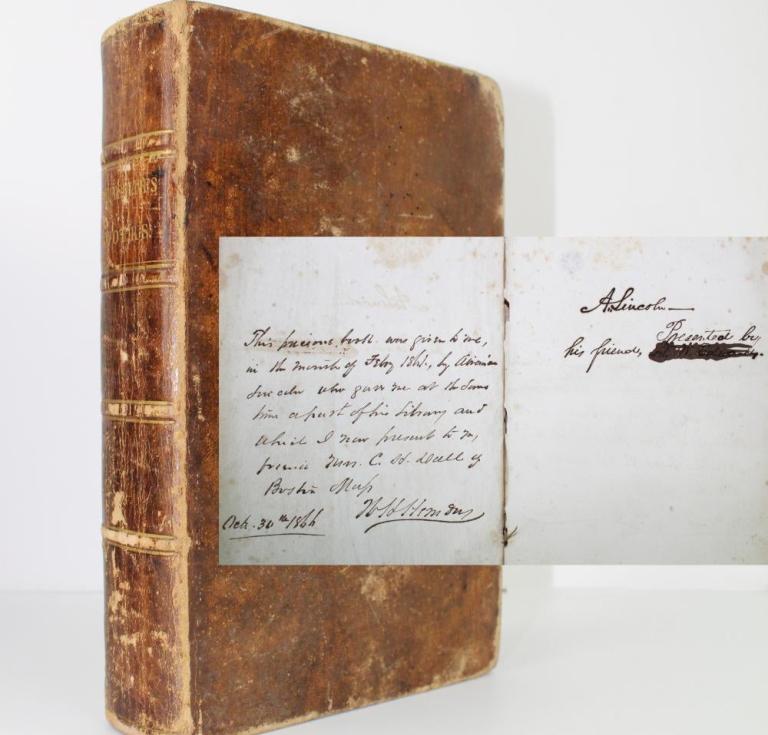 This precious book was given to me,
in the month of Feby 1861, by Abraham
Lincoln who gave me at the same
time a part of his library and
which I now present to my
friend Mrs. C. H. Dall of
Boston Mass
W H Herndon
Oct. 30th 1866
A. Lincoln—
Presented by
his friend,